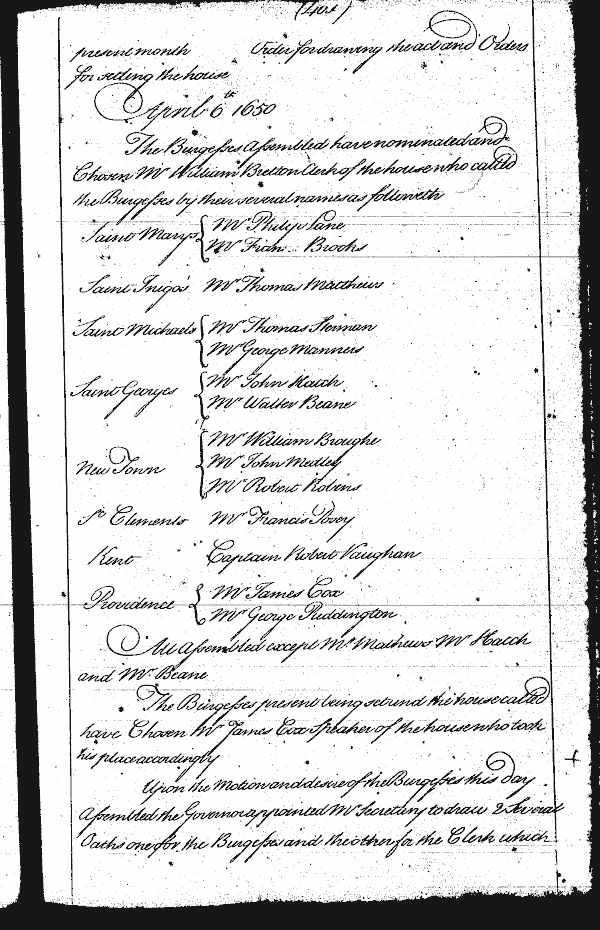 present month Order for drawing the act and Orders
for setling the house
April 6th 1650
The Burgesses Assembled have nominated and
Chosen Mr William Bretton Clerk of the house who called
the Burgesses by their several names as followeth
Saint Marys Mr Philip Lane
Mr Fran: Brooks
Saint Inigos Mr Thomas Matthews
Saint Michaels Mr Thomas Sterman
Mr George Manners
Saint Georges Mr John Hatch
Mr Walter Beane
Mr William Broughe
New Town Mr John Medley
Mr Robert Robins
St Clements Mr Francis Posey
Kent Captain Robert Vaughan
Providence Mr James Cox
Mr George Puddington
All Assembled except Mr Mathews Mr Hatch
and Mr Beane
The Burgesses present being set and the house called
have Chosen Mr James Cox Speaker of the house who took
his place accordingly
Upon the Motion and desire of the Burgesses this day
Assembled the Governor appointed Mr Secretary to draw 2 Several
Oaths one for the Burgesses and the other for the Clerk which